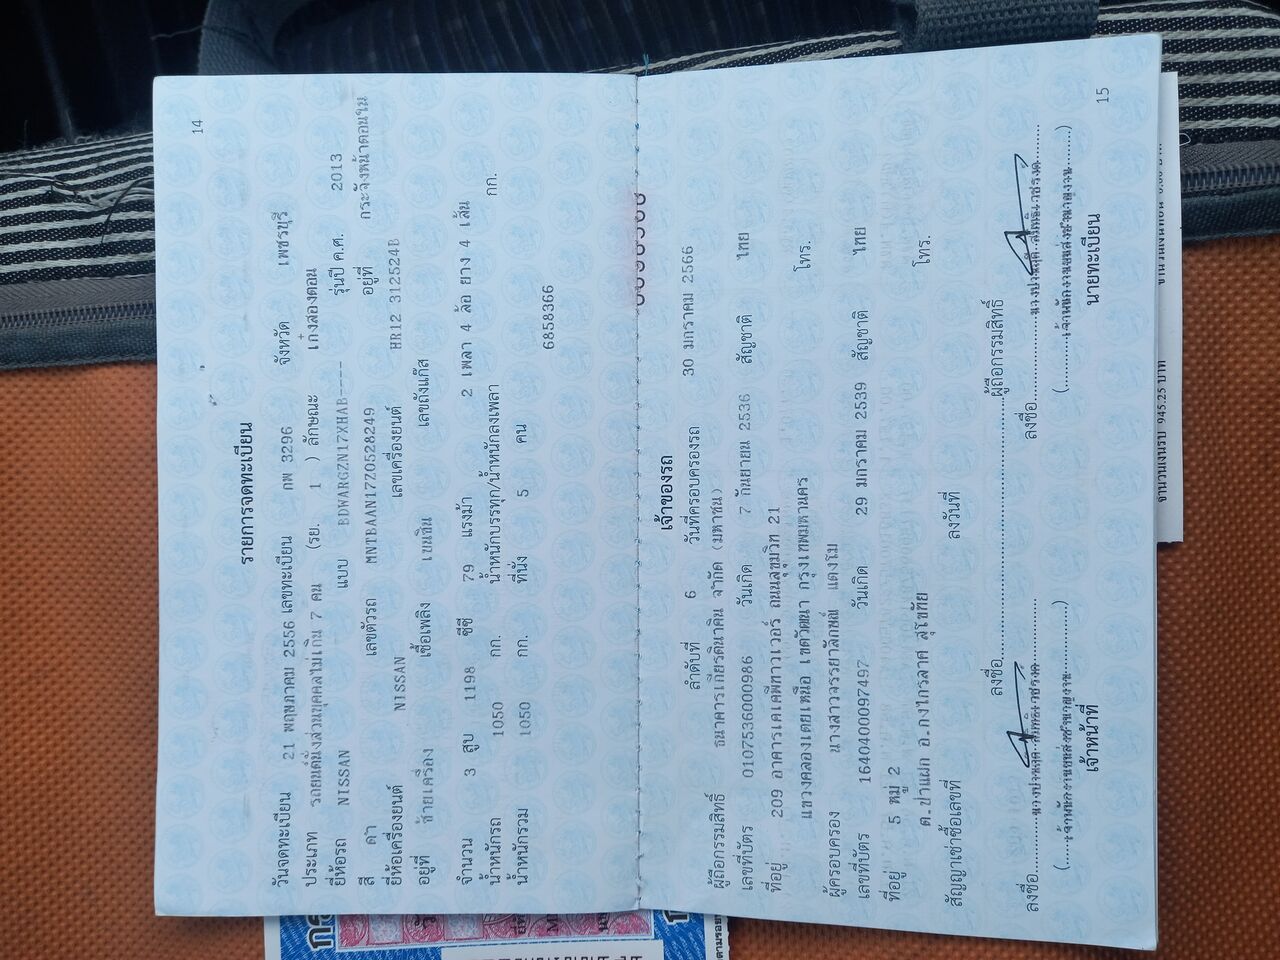 14
รายการจดทะเบียน
วันจดทะเบียน 21 พฤษภาคม 2556 เลขทะเบียน กพ 3296 จังหวัด เพชรบุรี
ประเภท รถยนต์นั่งส่วนบุคคลไม่เกิน 7 คน (รย. 1 ) ลักษณะ เก๋งสองตอน
ยี่ห้อรถ NISSAN แบบ BDWARGZN17XHAB---- รุ่นปี ค.ศ. 2013
สี ดำ เลขตัวรถ MNTBAAN17Z0528249 อยู่ที่ กระจังหน้าตอนใน
ยี่ห้อเครื่องยนต์ NISSAN เลขเครื่องยนต์ HR12 312524B
อยู่ที่ ซ้ายเครื่อง เชื้อเพลิง เบนซิน เลขถังแก๊ส
จำนวน 3 สูบ 1198 ซีซี 79 แรงม้า 2 เพลา 4 ล้อ ยาง 4 เส้น
น้ำหนักรถ 1050 กก. น้ำหนักบรรทุก/น้ำหนักลงเพลา กก.
น้ำหนักรวม 1050 กก. ที่นั่ง 5 คน
6858366
เจ้าของรถ
ลำดับที่ 6 วันที่ครอบครองรถ 30 มกราคม 2566
ผู้ถือกรรมสิทธิ์ ธนาคารเกียรตินาคิน จำกัด (มหาชน)
เลขที่บัตร 0107536000986 วันเกิด 7 กันยายน 2536 สัญชาติ ไทย
ที่อยู่ 209 อาคารเคเคพีทาวเวอร์ ถนนสุขุมวิท 21
แขวงคลองเตยเหนือ เขตวัฒนา กรุงเทพมหานคร โทร.
ผู้ครอบครอง นางสาวจรรยาลักษณ์ แตงโม
เลขที่บัตร 1640400097497 วันเกิด 29 มกราคม 2539 สัญชาติ ไทย
ที่อยู่ 5 หมู่ 2
ต.ป่าแฝก อ.กงไกรลาศ สุโขทัย โทร.
สัญญาเช่าซื้อเลขที่ ลงวันที่
ลงชื่อ ผู้ถือกรรมสิทธิ์
ลงชื่อ ลงชื่อ
เจ้าหน้าที่ นายทะเบียน
15
จำนวนเงินรับ 945.25 บาท